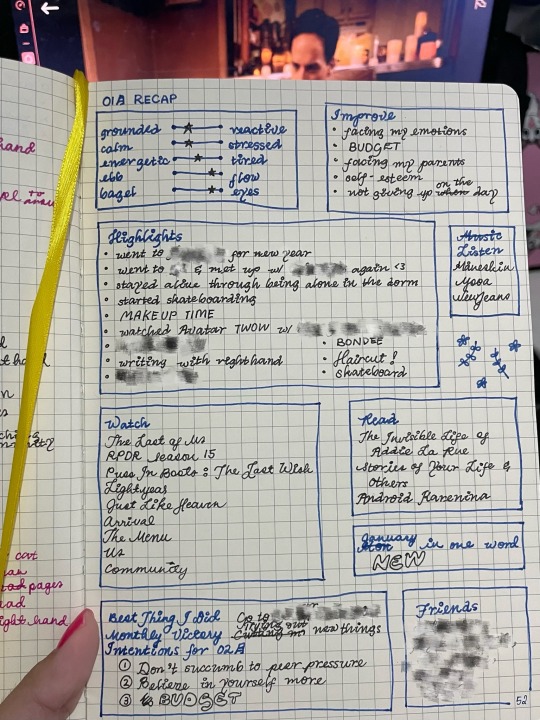 01A RECAP
grounded reactive
calm stressed
energetic tired
ebb flow
bagel eyes
Improve
• facing my emotions
• BUDGET
• facing my parents
• self-esteem
• not giving up when on the day
Highlights
• went to for new year
• went to & met up w/ again <3
• stayed alive through being alone in the dorm
• started skateboarding
• MAKEUP TIME
• watched Avatar TWOW w/
•
• writing with right hand
•
• BONDEE
• Haircut!
• skateboard
Music
Listen
Måneskin
Yooa
NewJeans
Watch
The Last of Us
RPDR season 15
Puss In Boots: The Last Wish
Lightyear
Just Like Heaven
Arrival
The Menu
Us
Community
Read
The Invisible Life of
Addie La Rue
Stories of Your Life &
Others
Android Karenina
January in one word
NEW
Best Thing I Did Go to
Monthly Victory Trying out new things
Intentions for 02A
① Don't succumb to peer pressure
② Believe in yourself more
③ BUDGET
Friends
52
hand
pages
right hand